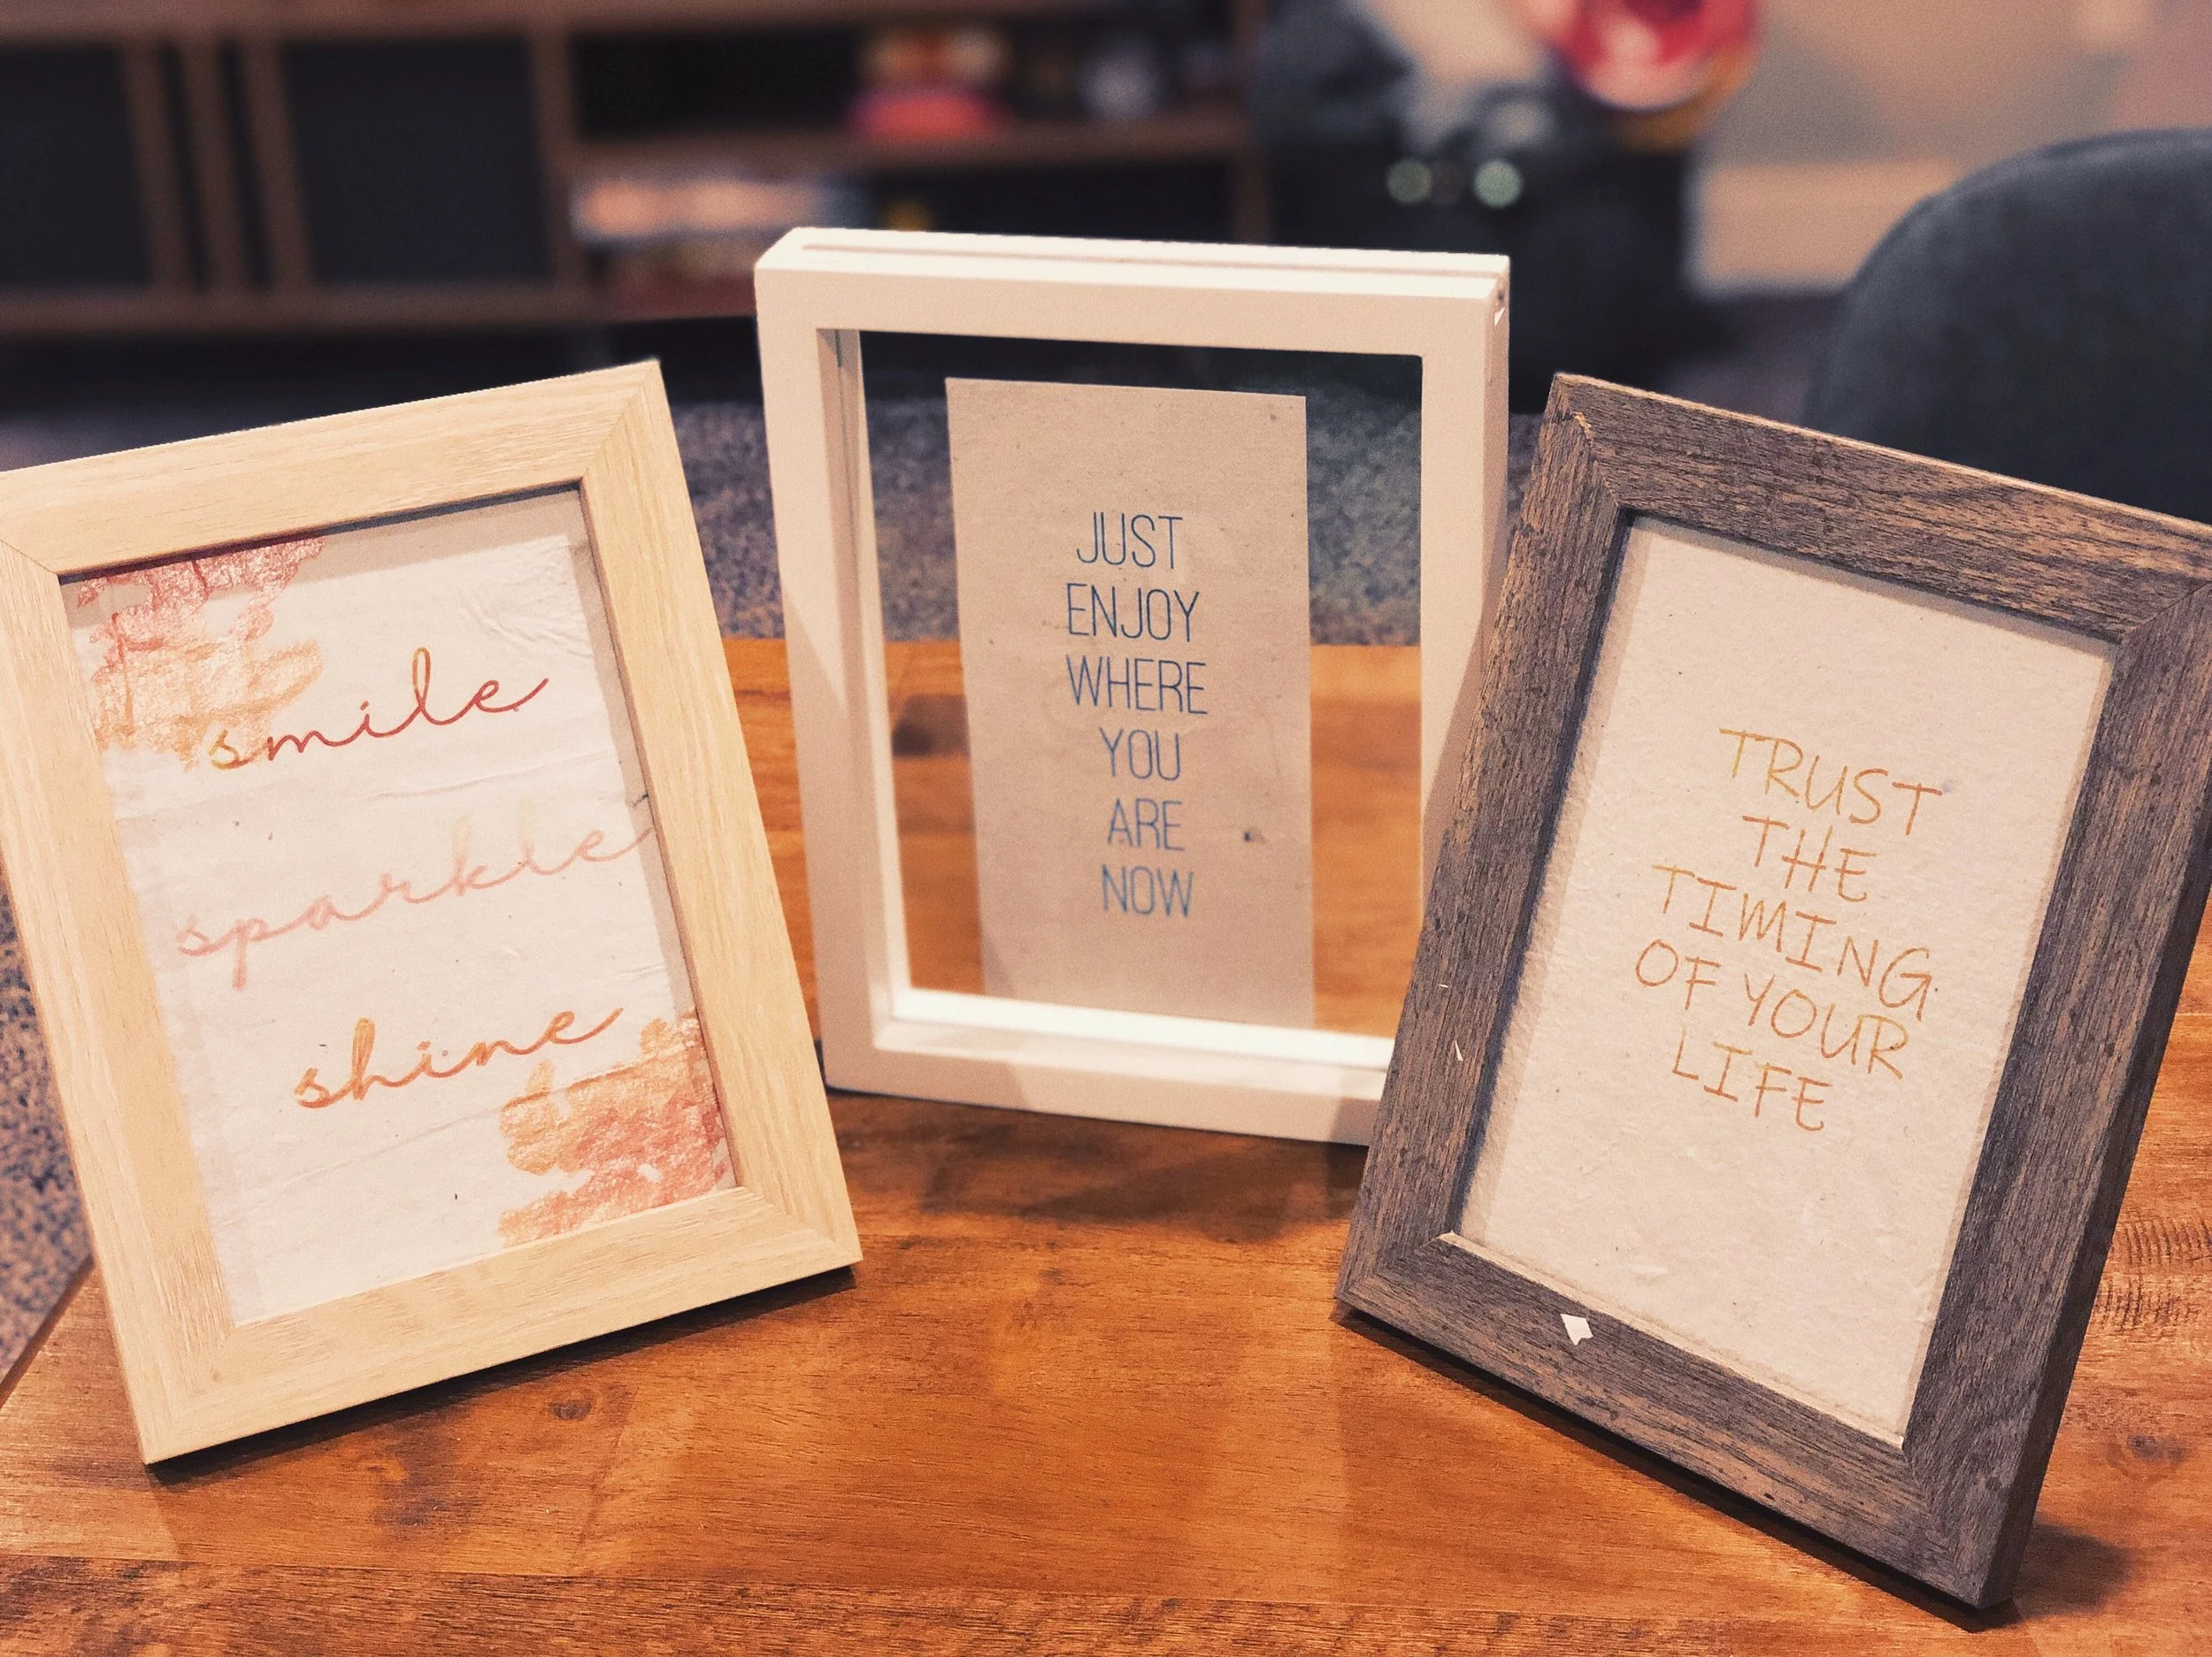 smile
sparkle
shine
JUST
ENJOY
WHERE
YOU
ARE
NOW
TRUST
THE
TIMING
OF YOUR
LIFE